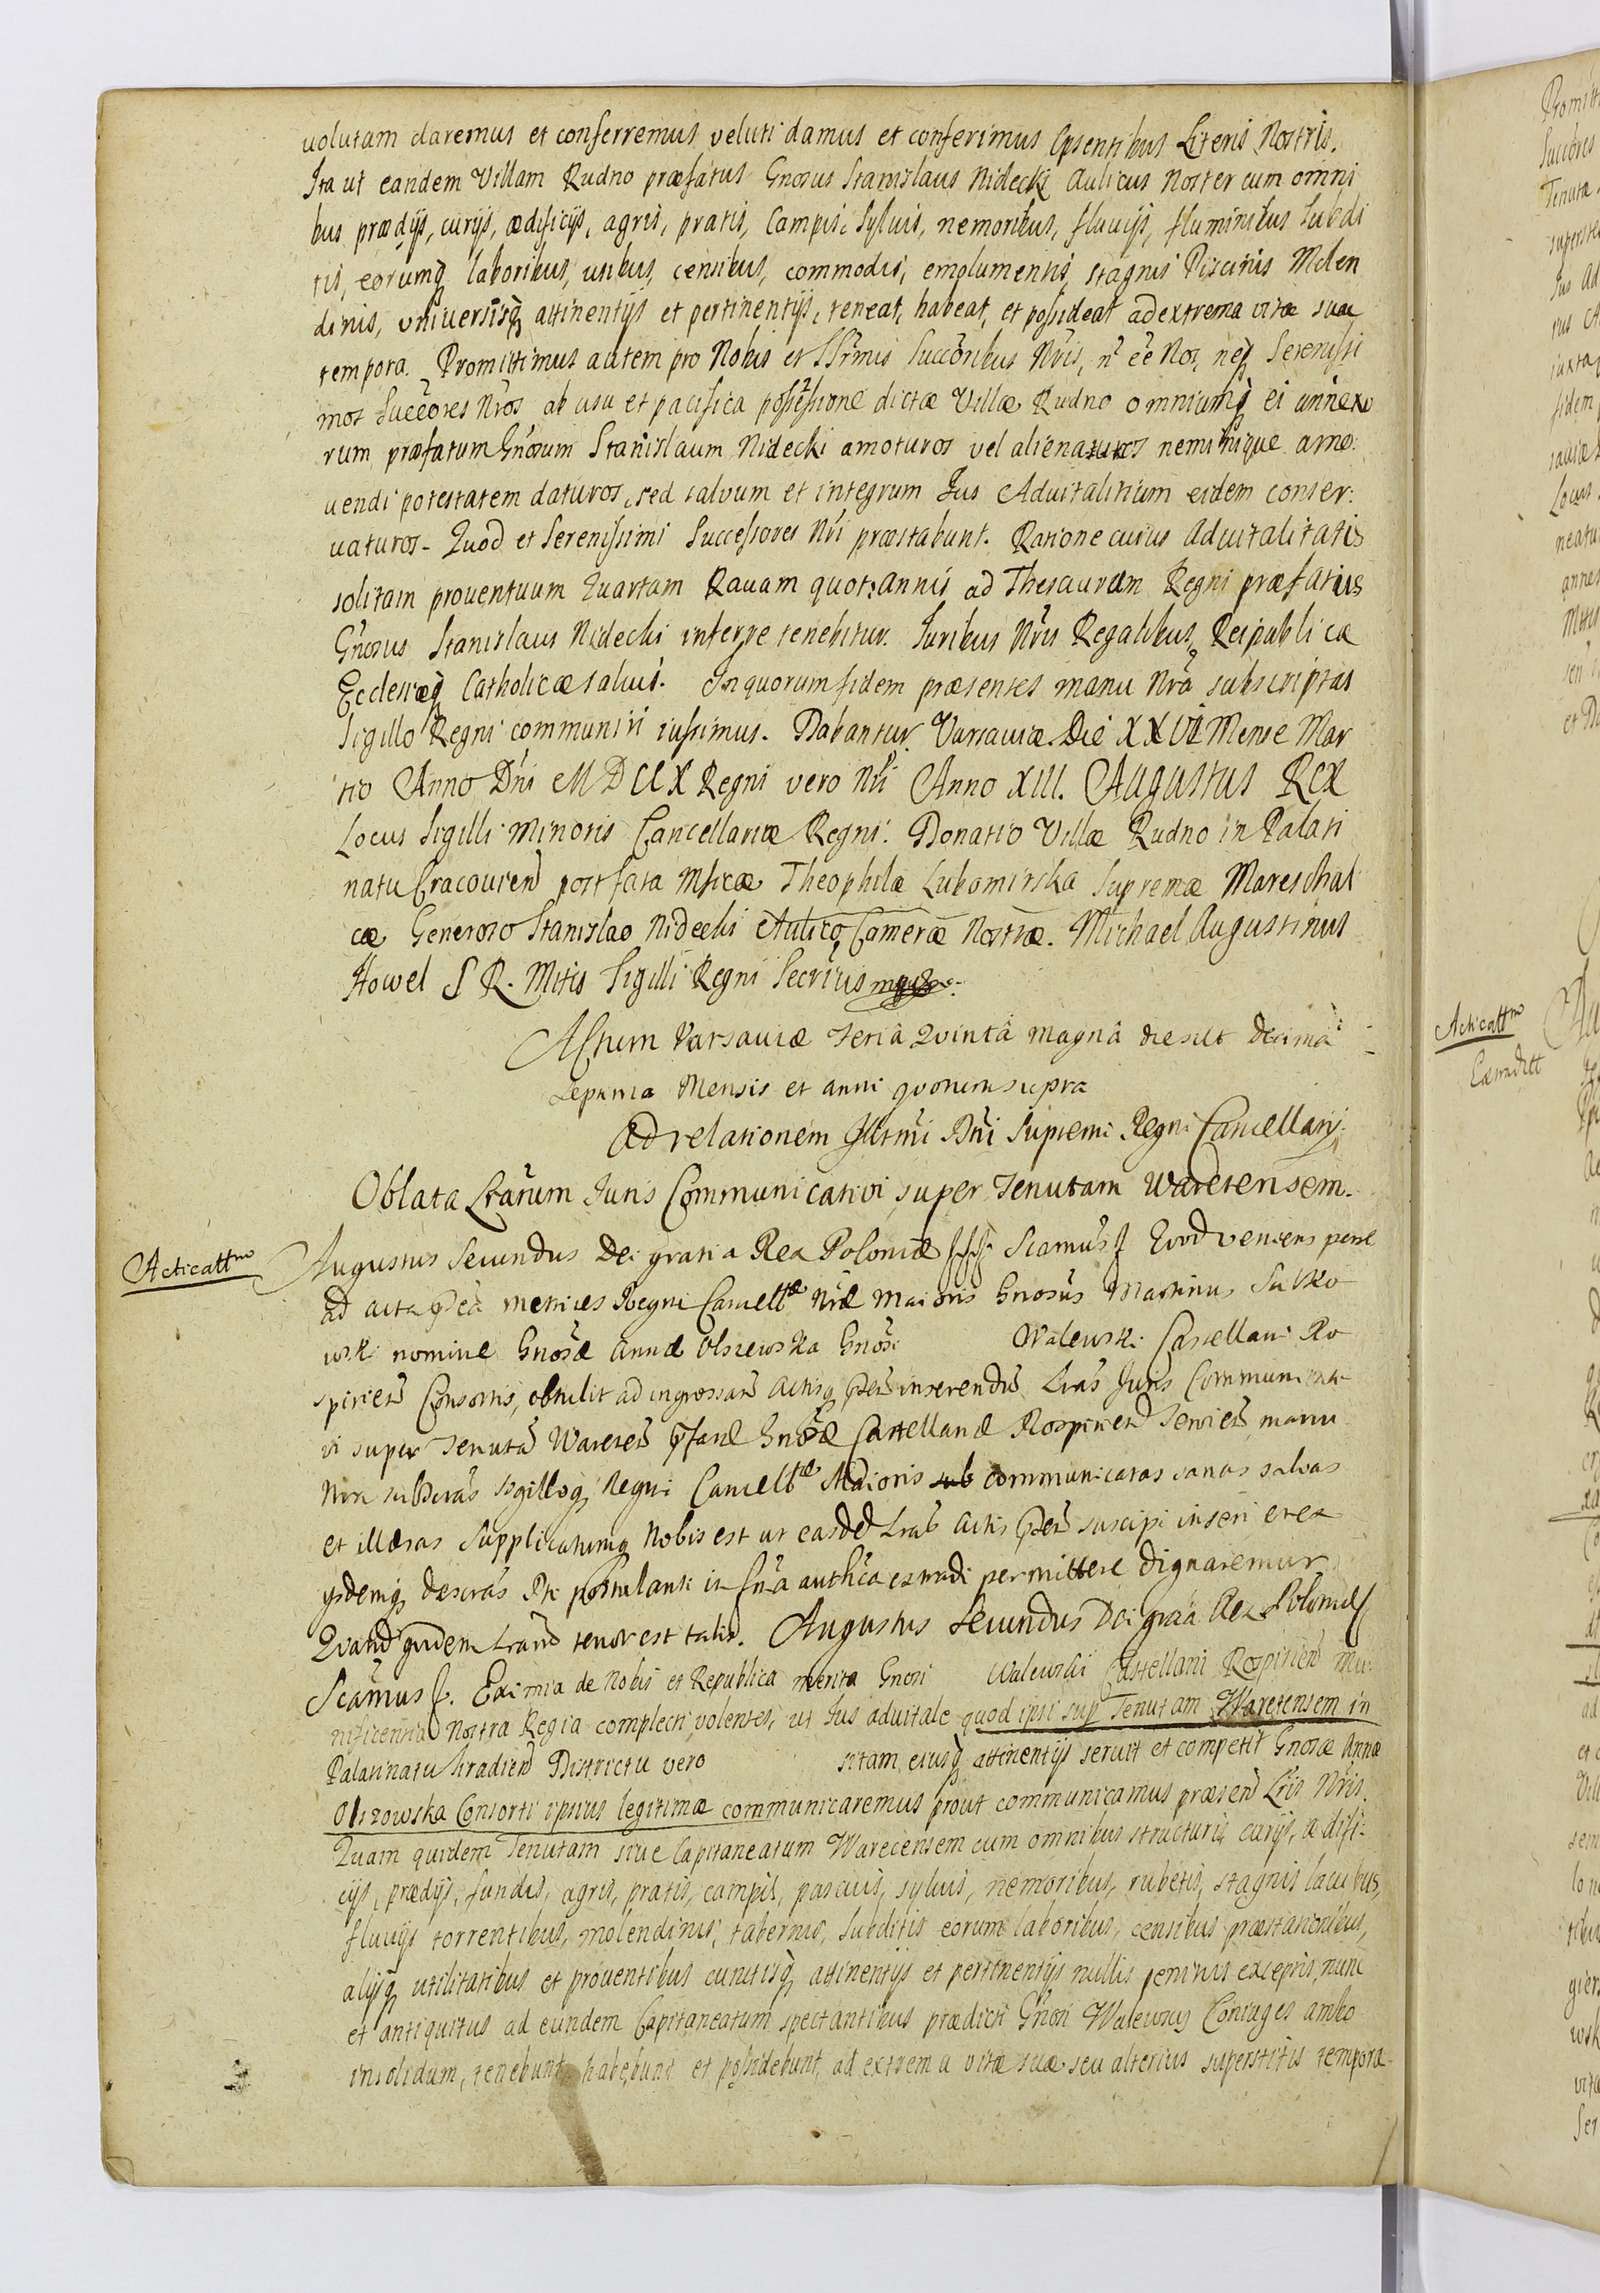 uolutam daremus et conferremus veluti damus et conferimus Literis Nostris.
Ita ut eandem Villam Rudno præfatus Gnosus Stanislaus Nidecki Aulicus Noster cum omni
bus prædijs, curijs, ædificijs, agris, pratis, Campis, Syluis, nemoribus, fluuijs, fluminibus Subdi
tis, eorumq laboribus, usibus, censibus, commodis, emolumentis, stagnis Piscinis Molen
dinis, vniuersisq attinentijs et pertinentijs, teneat, habeat, et possideat ad extrema vitæ suæ
tempora. Promittimus autem pro Nobis et Ssrmis Succoribus Nris, n ee Nos, neq Serenissi
mos Succeores Nros ab usu et pacifica possessione dictæ Villæ Rudno omniumq ei annexo
rum præfatum Gnosum Stanislaum Nidecki amoturos vel alienaturos neminique amo:
uendi potestatem daturos, sed saluum et integrum Jus Aduitalitium eidem conser:
uaturos. Quod et Serenissimi Successores Nri præstabunt. Ratione cuius Aduitalitatis
solitam prouentuum Quartam Rauam quot:annis ad Thesaurum Regni præfatus
Gnosus Stanislaus Nidecki inferre tenebitur. Juribus Nris Regalibus, Reipublicæ
Ecclesiæq Catholicæ saluis. In quorum fidem præsentes manu Nra subscriptas
Sigillo Regni communiri iussimus. Dabantur Varsauiæ Die XXVI Mense Mar
tio Anno Dni MDCCX Regni vero Nri Anno XIII. Augustus Rex
Locus Sigilli minoris Cancellariæ Regni. Donatio Villæ Rudno in Palati
natu Cracouien post fata Msicæ Theophilæ Lubomirska Supremæ Mareschal
cæ Generoso Stanislao Nidecki Aulico Cameræ Nostræ. Michael Augustinus
Howel S R. Mtis Sigilli Regni Secrius mpp
Actum Varsauiæ Feriâ Quintâ magnâ die scilt decimâ
septima Mensis et anni quorum supra
Ad relationem Illrmi Dni Supremi Regni Cancellarij
Oblata Lrarum Juris Communicatiui super Tenutam Waretensem.
Acticattm
Augustus Secundus Dei gratia Rex Poloniæ Scamus Quod veniens perse
ad acta metrices Regni Cancellæ Nræ Maioris Gnosus Martinus Sutko
wski nomine Gnosæ Annæ Olszewska Gnosi Walewski Castellani Ro
spirien Consortis, obtulit ad ingrossand Actisq inserendu Lras Juris Communicati
ui super Tenuta Wareten Gnosæ Castellanæ Rospirien Seruien manu
Nra subscras Sigilloq Regni Cancellæ Maioris sub communicatas sanas saluas
et illæsas Supplicatumq Nobis est ut easd Lras Actis suscipi inseri et ex
ysdemq descras Pti postulanti in authca extradi permittere dignaremur
Quaru quidem Lraru tenor est talis. Augustus Secundus Dei gratia Rex Poloniæ
Scamus. Eximia de Nobis et Republica merita Gnosi Walewski Castellani Rospirien Mu:
nificentia Nostra Regia complecti volentes, ut Jus aduitale quod ipsi sup Tenutam Waretensem in
Palatinatu Siradien Districtu vero sitam, eiusq attinentijs seruit et competit Gnosæ Annæ
Olszowska Consorti ipsius legitimæ communicaremus prout communicamus præsen Lris Nris.
Quam quidem Tenutam siue Capitaneatum Warecensem cum omnibus structuris curijs, ædifi:
cijs, prædijs, fundis, agris, pratis, campis, pascuis, syluis, nemoribus, rubetis, stagnis lacubus,
fluuijs torrentibus, molendinis, tabernis, Subditis eorum laboribus, censibus præstationibus,
alijsq utilitatibus et prouentibus cunctisq attinentijs et pertinentijs nullis penitus exceptis, nunc
et antiquitus ad eundem Capitaneatum spectantibus prædicti Gnosi Walewscy Coniuges ambo
insolidum, tenebunt habebunt et possidebunt, ad extrema vitæ suæ seu alterius superstitis tempora
Acticattm
Extraditt